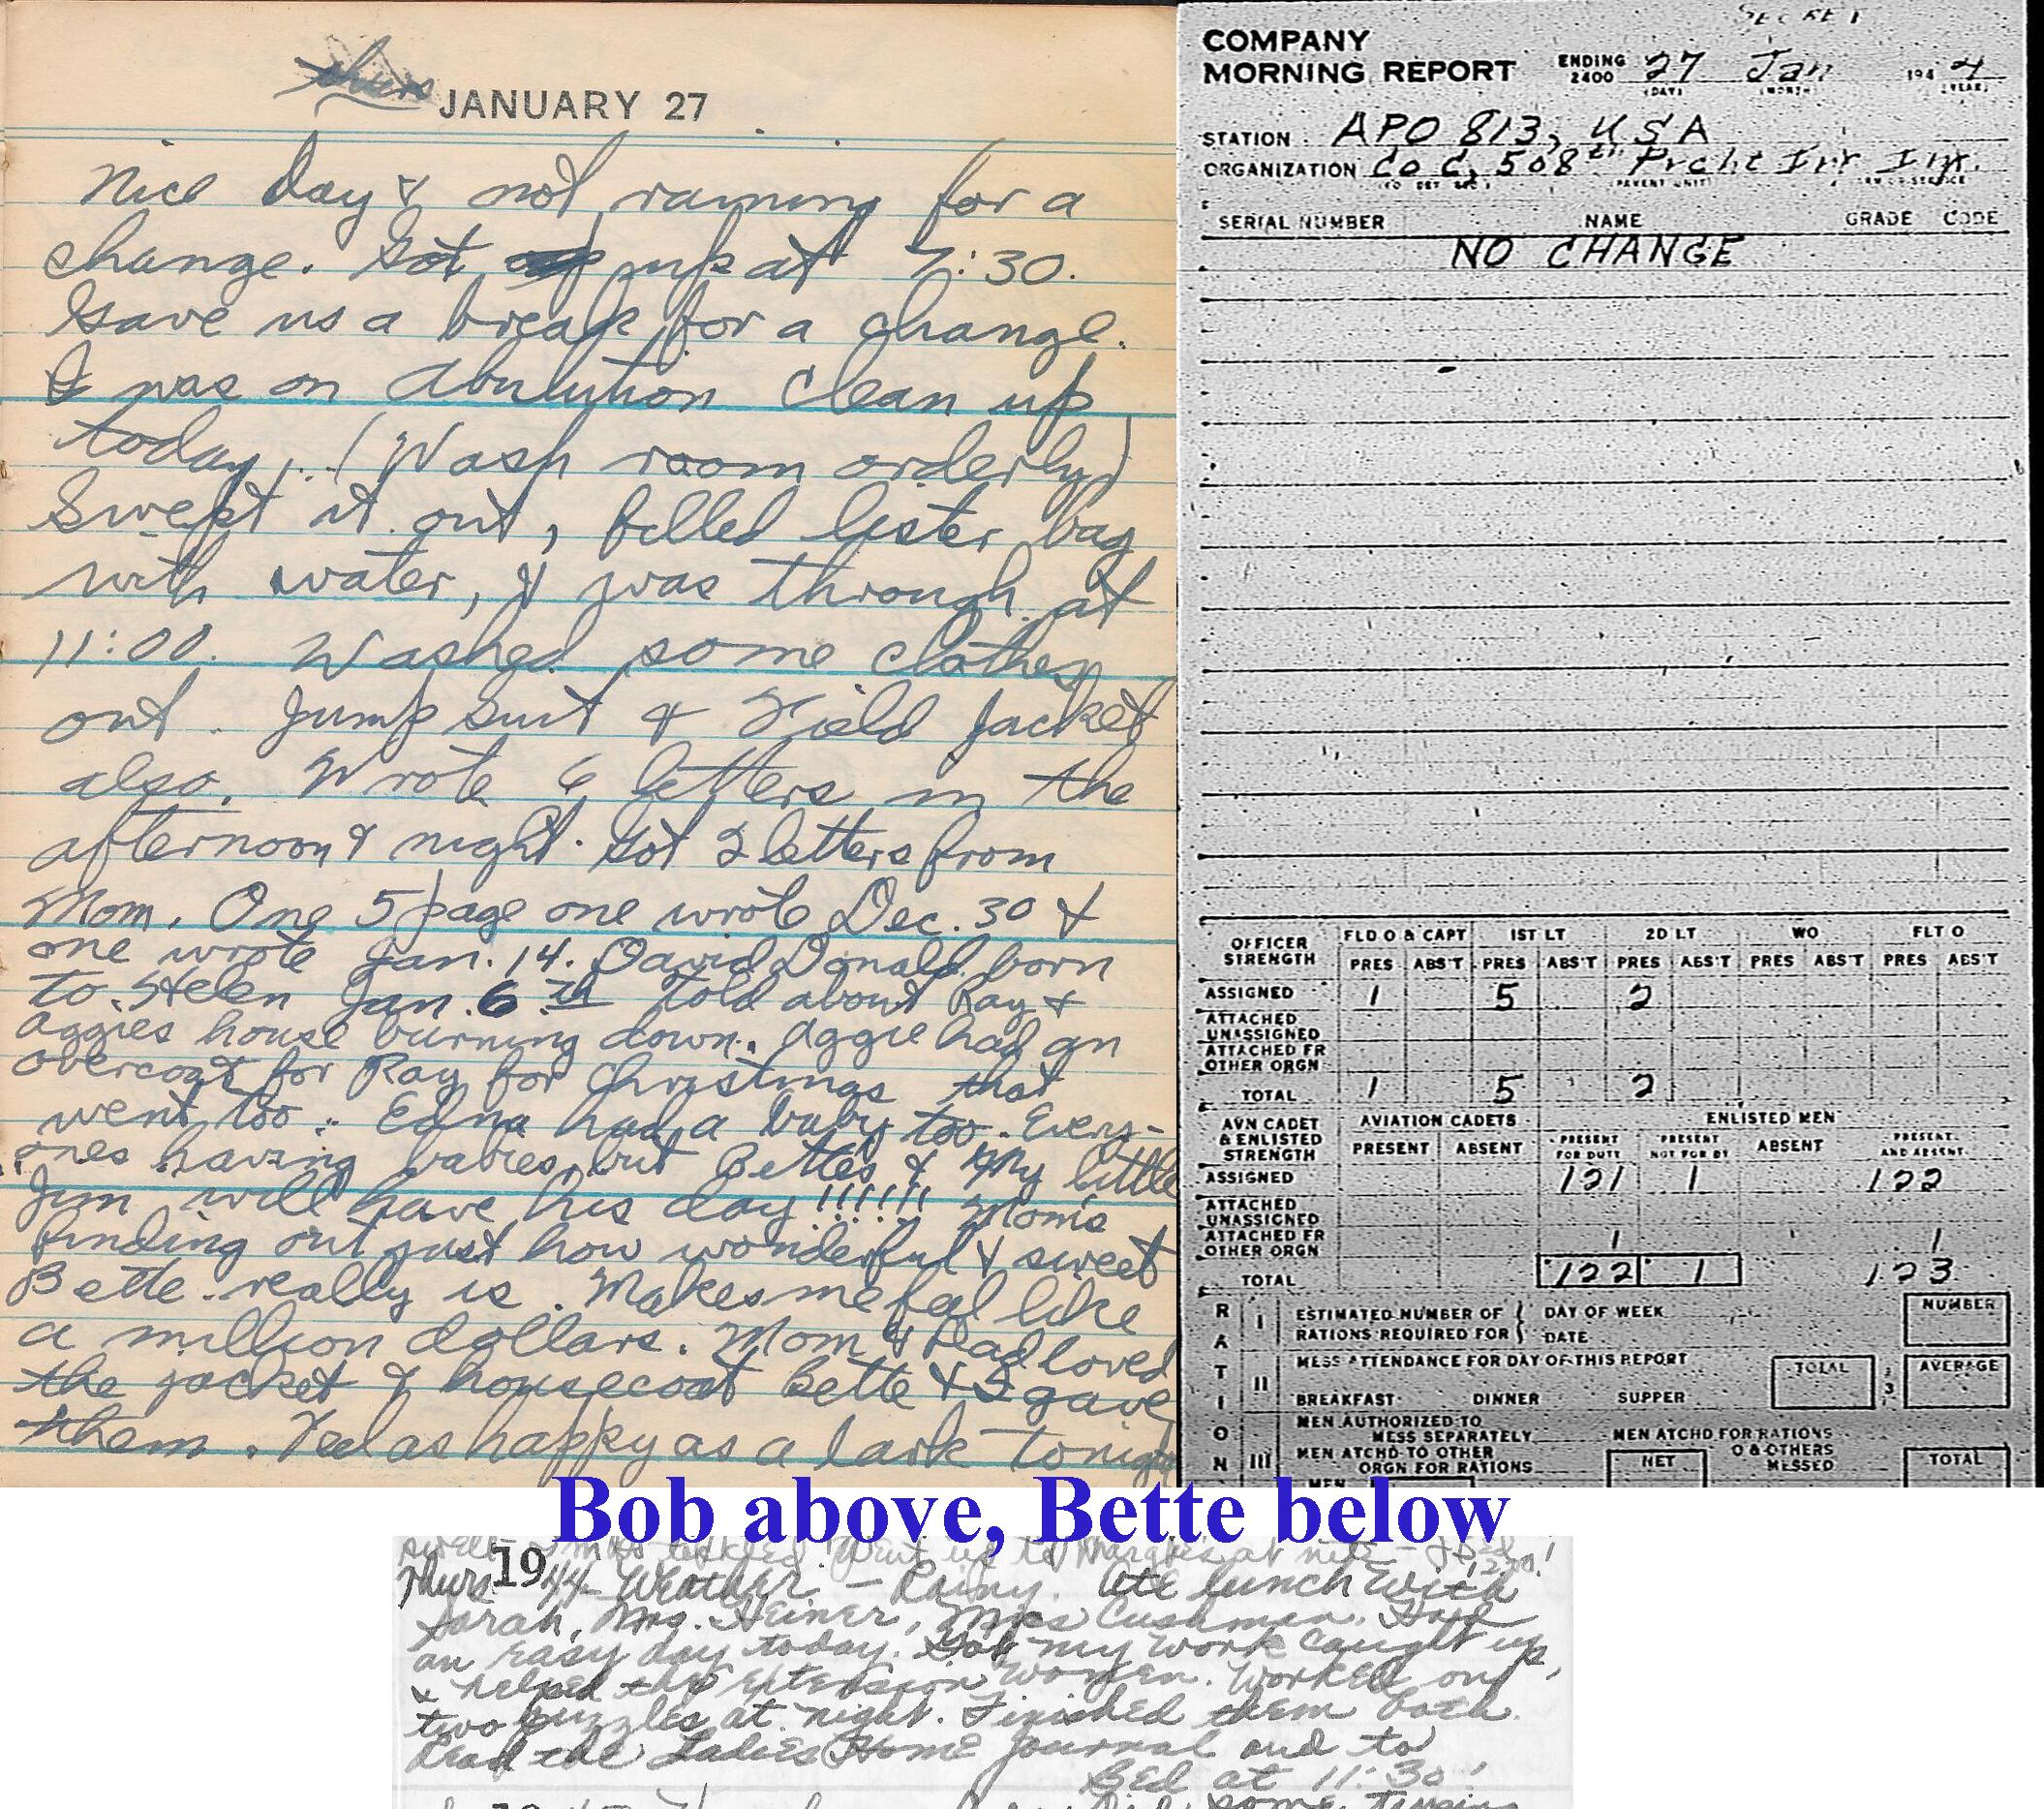 Thurs
JANUARY 27
Nice day & not raining for a
change. Got up at 7:30.
Gave us a break for a change.
I was on abulution clean up
today. (Wash room orderly)
Swept it out, filled lister bag
with water, & was through at
11:00. Washed some clothes
out. Jump suit & Field Jacket
also. Wrote 6 letters in the
afternoon & night. Got 2 letters from
Mom. One 5 page one wrote Dec. 30 &
one wrote Jan. 14. David Donald born
to Helen Jan. 6th Told about Ray &
Aggies house burning down. Aggie had an
overcoat for Ray for Christmas that
went too. Edna had a baby too. Every-
ones having babies but Bette's & My little
Jim will have his day!!!!!! Mom's
finding out just how wonderful & sweet
Bette really is. Makes me feel like
a million dollars. Mom & Dad loved
the jacket & housecoat Bette & I gave
them. Feel as happy as a lark tonight
SECRET
COMPANY
MORNING REPORT ENDING 2400 27 Jan 1944
(DAY) (MONTH) (YEAR)
STATION APO 813, USA
ORGANIZATION Co C, 508th Prcht Inf Inf.
SERIAL NUMBER NAME GRADE CODE
NO CHANGE
OFFICER STRENGTH FLD O & CAPT 1ST LT 2D LT WO FLT O
PRES ABS'T PRES ABS'T PRES ABS'T PRES ABS'T PRES ABS'T
ASSIGNED 1 5 2
ATTACHED
UNASSIGNED
ATTACHED FR
OTHER ORGN
TOTAL 1 5 2
AVN CADET & ENLISTED STRENGTH AVIATION CADETS ENLISTED MEN
PRESENT ABSENT PRESENT FOR DUTY PRESENT NOT FOR DY ABSENT PRESENT AND ABSENT
ASSIGNED 121 1 122
ATTACHED
UNASSIGNED
ATTACHED FR
OTHER ORGN 1 1
TOTAL 122 1 123
RATION
I ESTIMATED NUMBER OF DAY OF WEEK NUMBER
RATIONS REQUIRED FOR DATE
II MESS ATTENDANCE FOR DAY OF THIS REPORT TOTAL 3 AVERAGE
BREAKFAST DINNER SUPPER
III MEN AUTHORIZED TO
MESS SEPARATELY MEN ATCHD FOR RATIONS
MEN ATCHD TO OTHER
ORGN FOR RATIONS NET O & OTHERS
MESSED TOTAL
MEN
Bob above, Bette below
Went up to Margies at nite
12:30!
Thurs 1944 Weather - Rainy. Ate lunch with
Sarah, Mrs. Heiner, Miss Cushman. Had
an easy day today. Got my work caught up,
& helped the extension women. Worked on
two puzzles at night. Finished them both.
Read the Ladies Home Journal and to
Bed at 11:30!
some